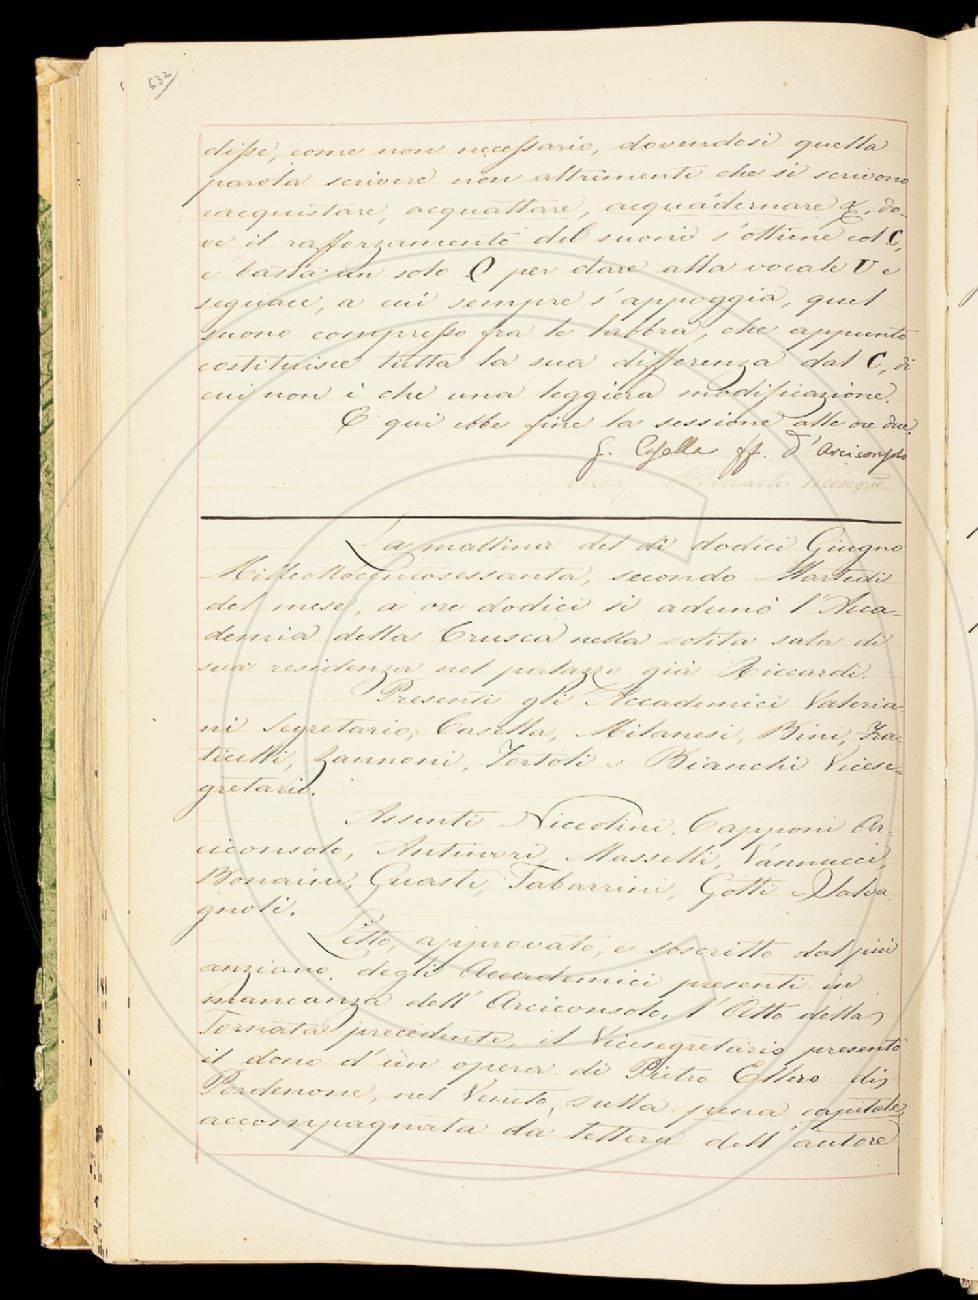 632
disse, come non necessario, dovendosi quella
parola scrivere non altrimenti che si scrivono
racquistare, acquattare, acquadernare &, do-
ve il rafforzamento del suono s'ottiene col C,
e basta un solo Q per dare alla vocale U e
seguace, a cui sempre s'appoggia, quel
suono compresso fra le labbra, che appunto
costituisce tutta la sua differenza dal C, di
cui non è che una leggiera modificazione.
E qui ebbe fine la sessione alle ore due.
G. Casella ff. d'Arciconsolo
La mattina del dì dodici Giugno
Milleottocentosessanta, secondo Martedì
del mese, a ore dodici si adunò l'Acca-
demia della Crusca nella solita sala di
sua residenza nel palazzo già Riccardi.
Presenti gli Accademici Valeria-
ni Segretario, Casella, Milanesi, Bini, Fra-
ticelli, Zannoni, Tortoli e Bianchi Vicese-
gretario.
Assenti Niccolini, Capponi Ar-
ciconsolo, Antinori, Masselli, Vannucci,
Bonaini, Guasti, Tabarrini, Gotti e Salva-
gnoli.
Letto, approvato, e soscritto dal più
anziano degli Accademici presenti in
mancanza dell'Arciconsolo, l'Atto della
Tornata precedente, il Vicesegretario presentò
il dono d'un opera di Pietro Ellero di
Pordenone, nel Veneto, sulla pena capitale,
accompagnata da lettera dell'autore